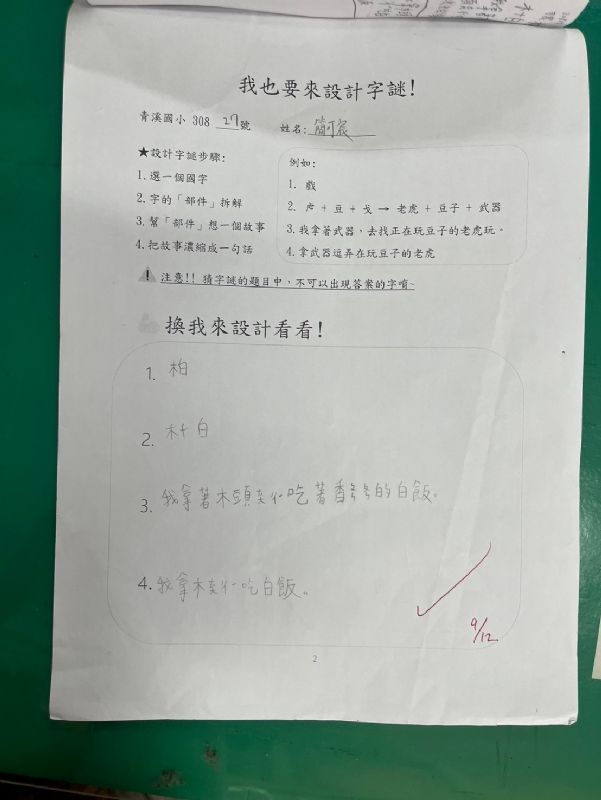 我也要來設計字謎!
青溪國小 308 27號 姓名:
★設計字謎步驟:
1.選一個國字
2.字的「部件」拆解
3.幫「部件」想一個故事
4.把故事濃縮成一句話
例如:
1. 戲
2. 虍 + 豆 + 戈 → 老虎 + 豆子 + 武器
3.我拿著武器,去找正在玩豆子的老虎玩。
4.拿武器逗弄在玩豆子的老虎
! 注意!! 猜字謎的題目中,不可以出現答案的字唷~
換我來設計看看!
1. 柏
2. 木+白
3. 我拿著木頭 吃著香ㄆㄆ的白飯。
4. 我拿木 吃白飯。
9/12
2